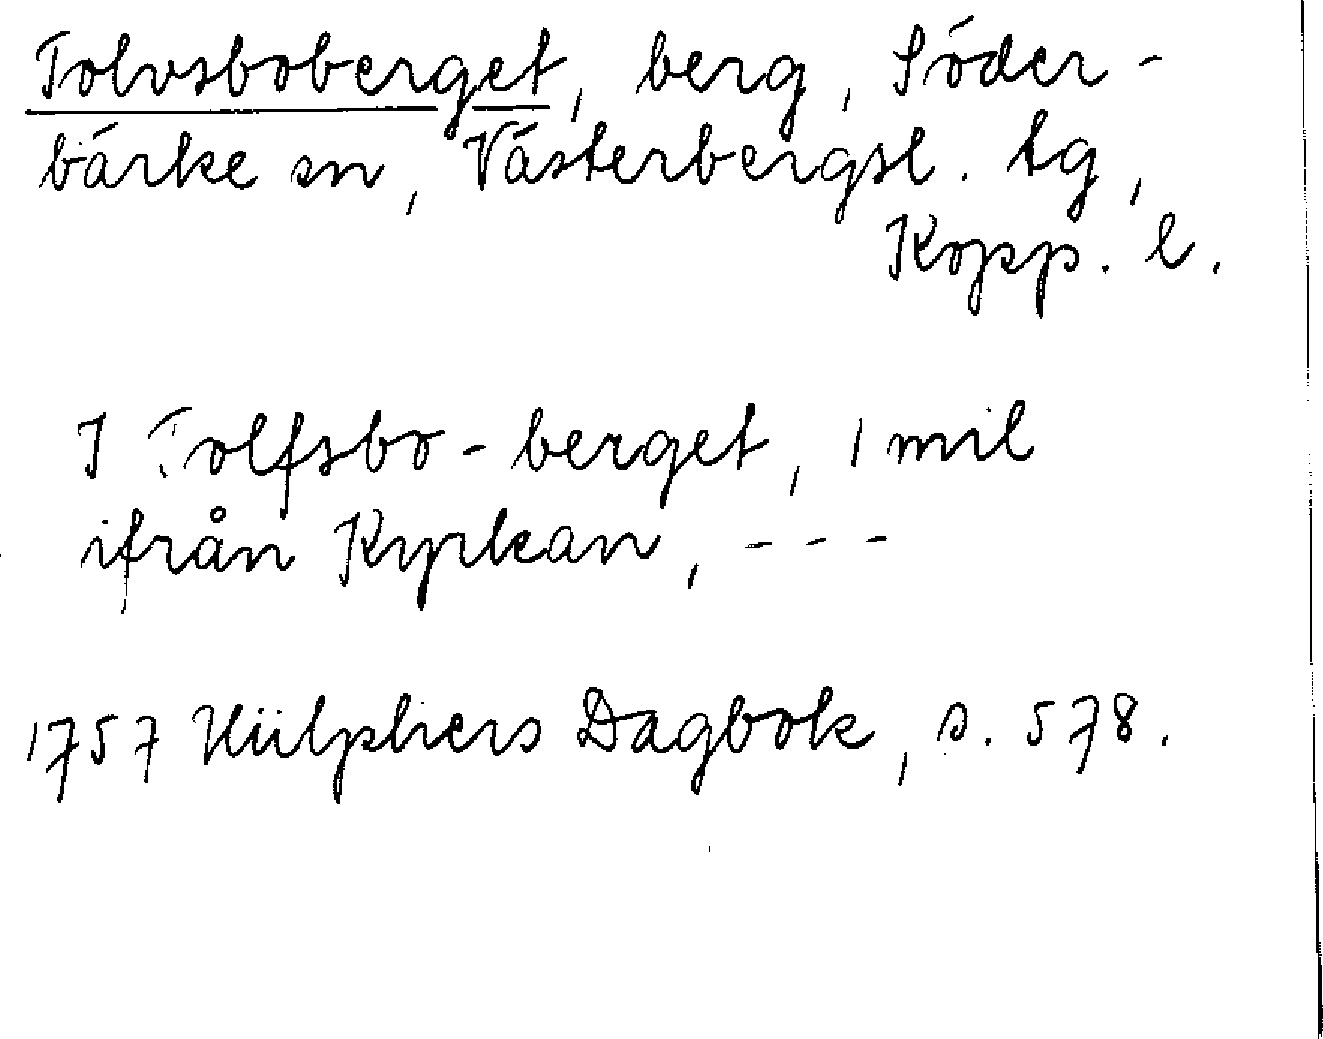 Tolvsboberget, berg, Söder-
bärke sn, Västerbergsl. tg,
Kopp. l.
I Tolfsbo-berget, 1 mil
ifrån Kyrkan, - - -
1757 Hülphers Dagbok, s. 578.